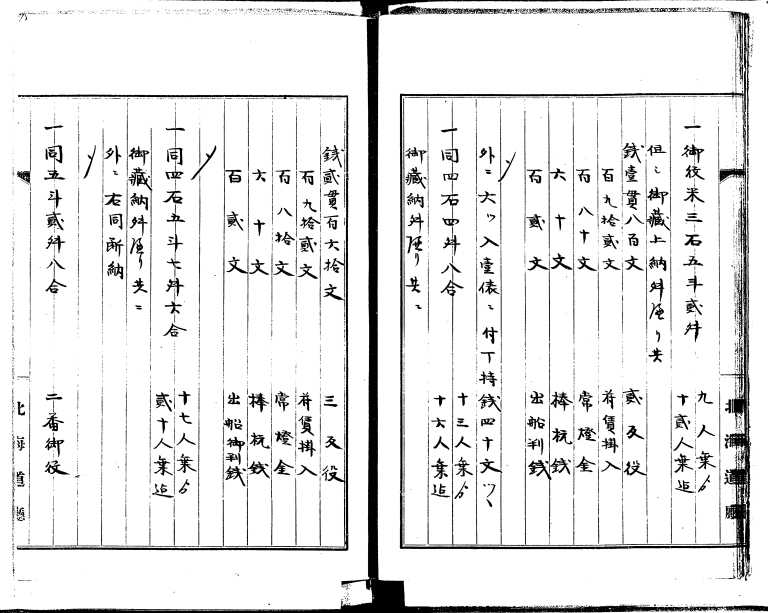 一御役米三石五斗貳舛
九人乗ゟ
十貳人乗迄
但シ御藏上納舛廻り共
錢壹貫八百文 貳及役
百九拾貳文 并賃掛入
百八十文 常燈金
六十文 棒杭錢
百貳文 出船判錢
〆
外ニ六ッ入壹俵ニ付丁持錢四十文ツヽ
一同四石四舛八合
十三人乗ゟ
十六人乗迄
御藏納舛廻り共ニ
錢貳貫百六拾文 三及役
百九拾貳文 并賃掛入
百八拾文 常燈金
六十文 棒杭錢
百貳文 出船御判錢
〆
一同四石五斗七舛六合
十七人乗ゟ
貳十人乗迄
御藏納舛廻り共ニ
外ニ右同断納
〆
一同五斗貳舛八合 二番御役
北海道廳
北海道廳